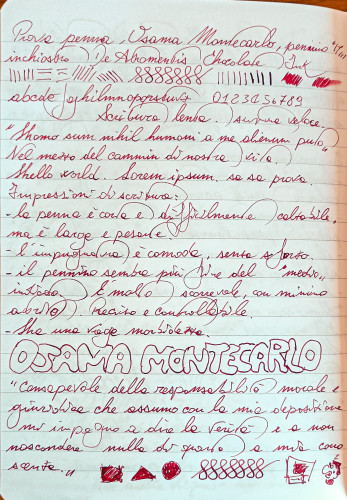 Prova penna, Osama Montecarlo, pennino "M"
inchiostro De Atramentis Chocolate Ink
abcdefghilmnopqrstuvz 0123456789
Scrittura lenta. Scrittura veloce.
"Homo sum nihil humani a me alienum puto"
Nel mezzo del cammin di nostra vita.
Hello world. Lorem ipsum. sa sa prova.
Impressioni di scrittura:
- la penna è corta e difficilmente calzabile,
ma è large e pesante
- l'impugnatura è comoda, senza sforzo.
- il pennino sembra più fine del "medio"
indicato. È molto scorrevole, con minimo
attrito. Preciso e controllabile.
- Ha una vaga morbidezza.
OSAMA MONTECARLO
"consapevole della responsabilità morale e
giuridica che assumo con la mia deposizione
mi impegno a dire la verità e a non
nascondere nulla di quanto a mia cono
scenza."